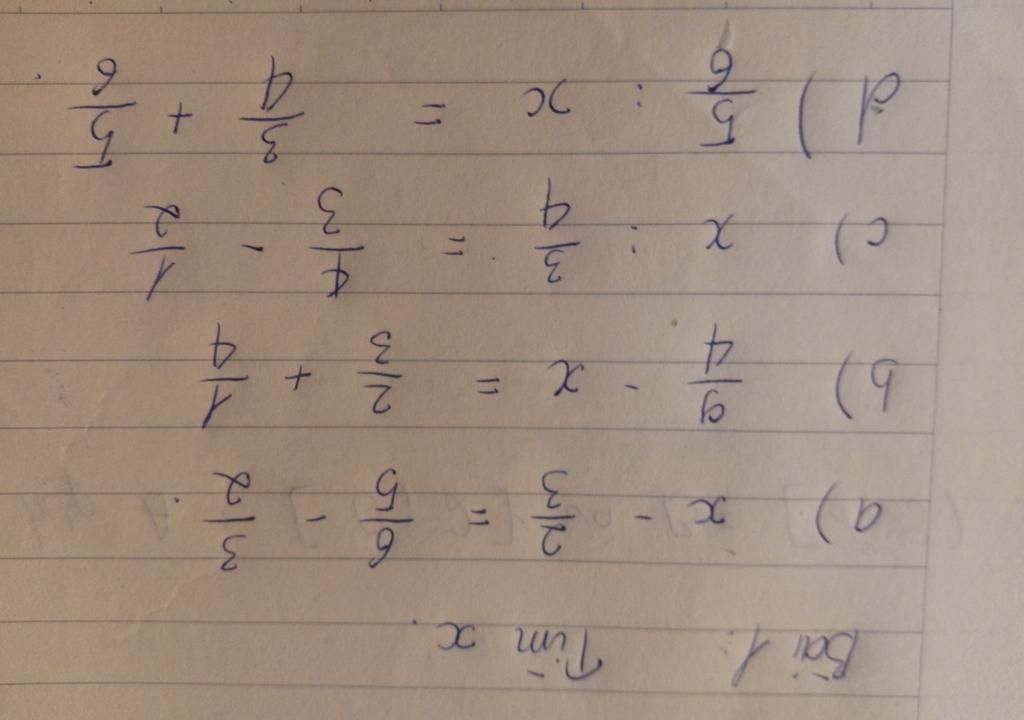 Bài 1: Tìm x.
a) x - 2/3 = 6/5 - 3/2.
b) 9/4 - x = 2/3 + 1/4
c) x : 3/4 = 4/3 - 1/2
d) 5/6 : x = 3/4 + 5/6.